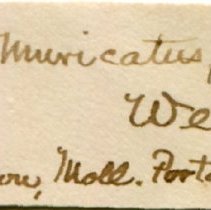 Muricatus,
We
ow, Moll. Port